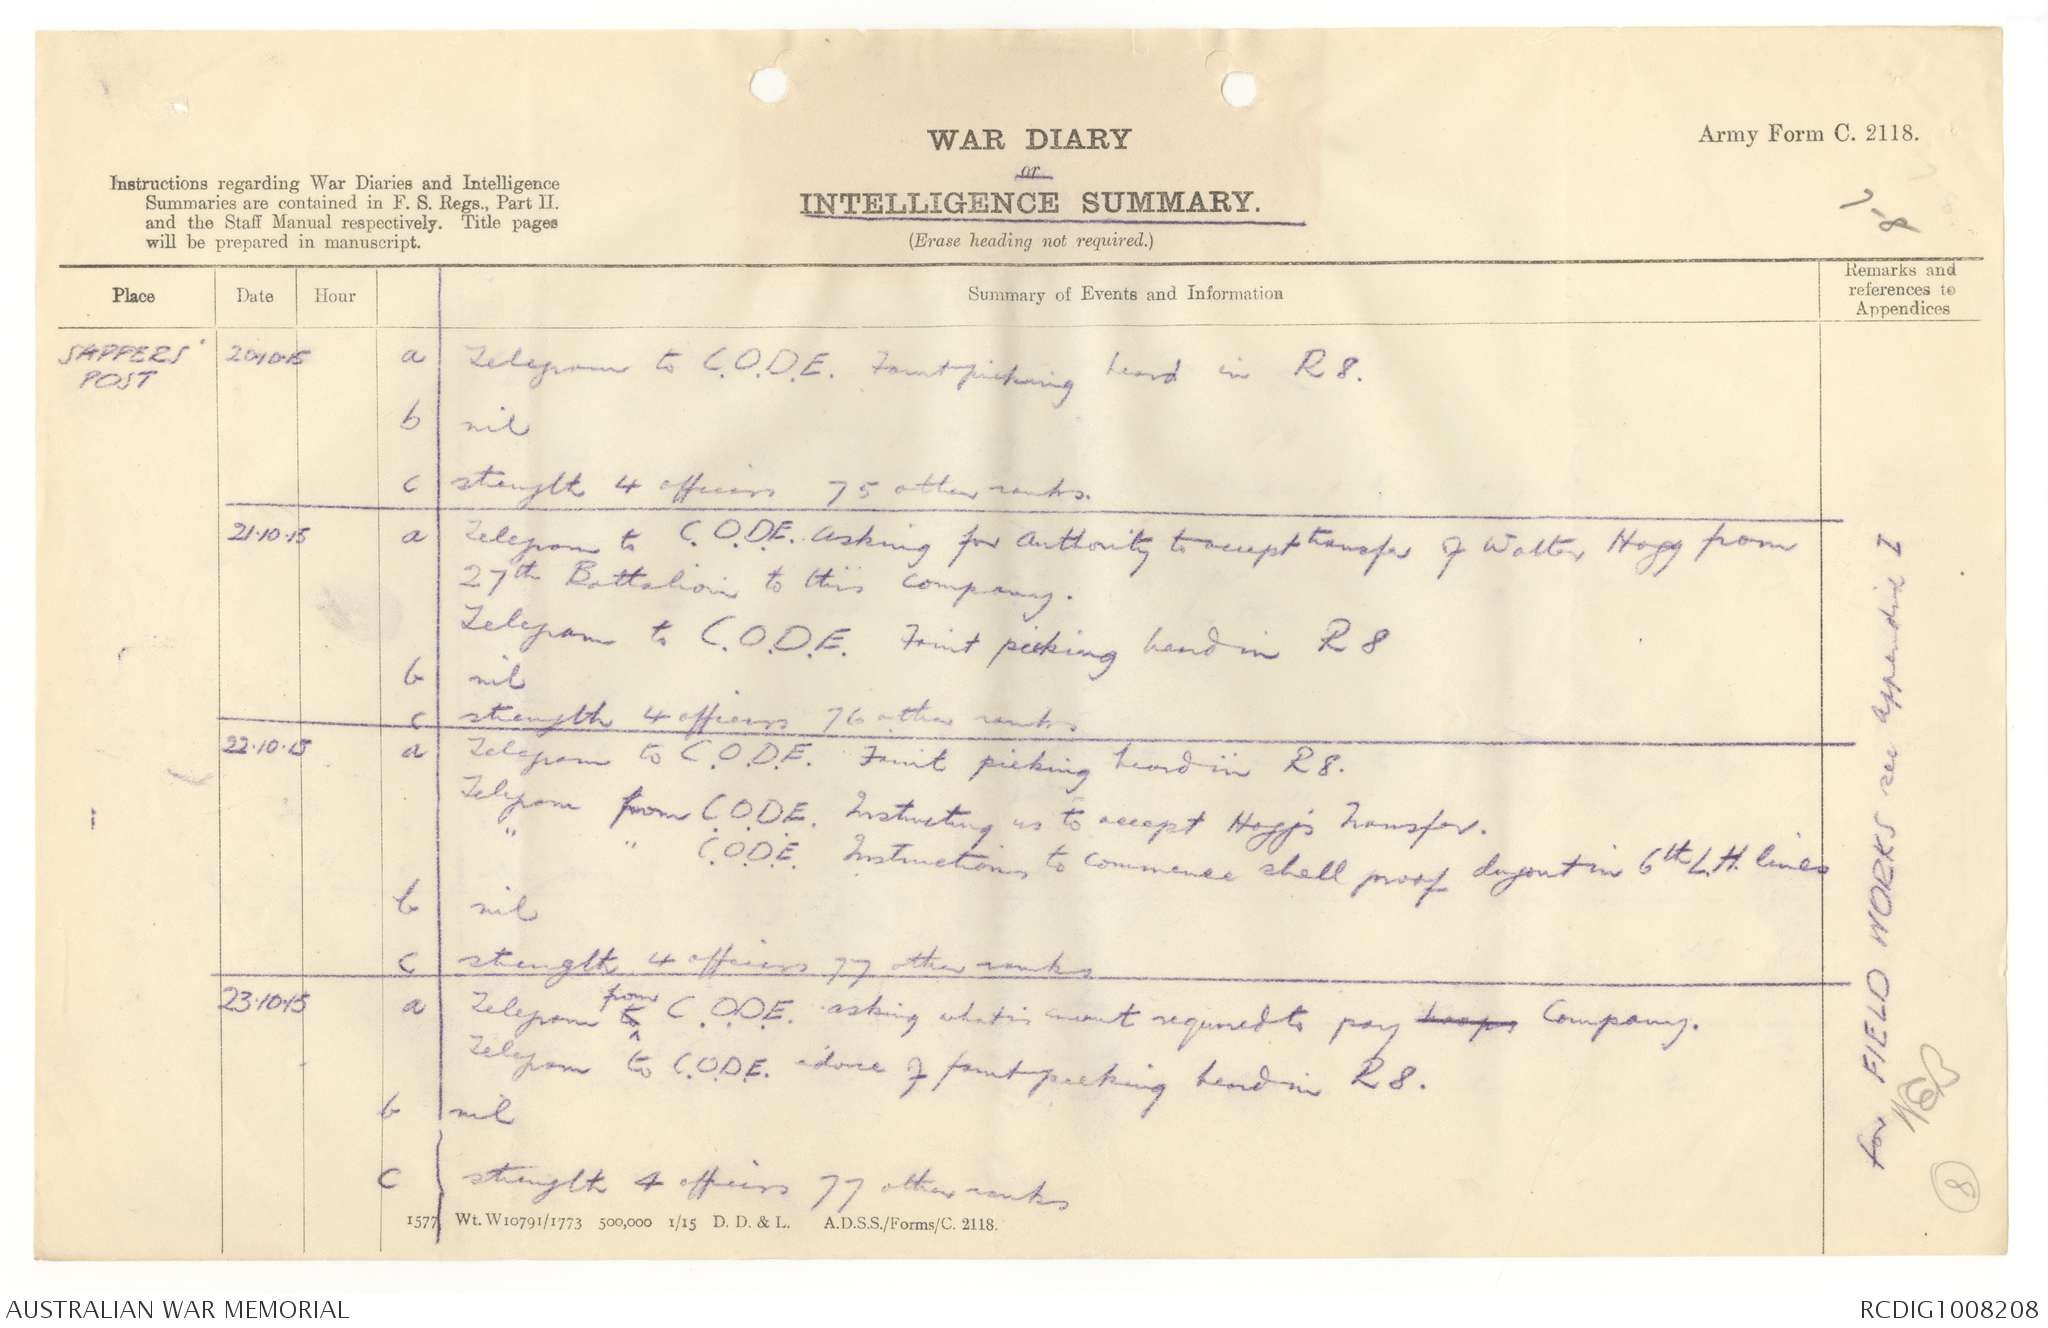 WAR DIARY
or
INTELLIGENCE SUMMARY.
(Erase heading not required.)
Army Form C. 2118.
Instructions regarding War Diaries and Intelligence
Summaries are contained in F. S. Regs., Part II.
and the Staff Manual respectively. Title pages
will be prepared in manuscript.
Place Date Hour Summary of Events and Information Remarks and references to Appendices
SAPPERS' POST 20.10.15 a Telegram to C.O.D.E. Faint picking heard in R 8.
b nil
c strength 4 officers 75 other ranks.
21.10.15 a Telegram to C.O.D.E. asking for authority to accept transfer of Walter Hogg from
27th Battalion to this company.
Telegram to C.O.D.E. Faint picking heard in R 8
b nil
c strength 4 officers 76 other ranks
22.10.15 a Telegram to C.O.D.E. Faint picking heard in R 8.
Telegram from C.O.D.E. Instructing us to accept Hogg's Transfer.
" " C.O.D.E. Instructions to commence shell proof dugout in 6th L.H. lines
b nil
c strength 4 officers 77 other ranks
23.10.15 a Telegram to from C.O.D.E. asking what is amount required to pay troops Company.
Telegram to C.O.D.E. advice of faint picking heard in R 8.
b nil
c strength 4 officers 77 other ranks
for FIELD WORKS see appendix I
8
1577 Wt. W10791/1773 500,000 1/15 D. D. & L. A.D.S.S./Forms/C. 2118.
AUSTRALIAN WAR MEMORIAL
RCDIG1008208